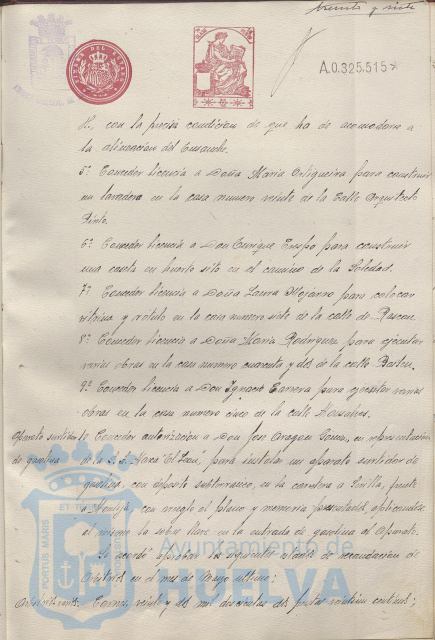 treinta y siete
A.0.325.515*
H., con la precisa condición de que ha de acomodarse a
la alineación del Ensanche.
5º Conceder licencia a Doña María Ortigueira para construir
un lavadero en la casa numero veinte de la Calle Arquitecto
Pinto.
6º Conceder licencia a Don Enrique Crespo para construir
una caseta en huerto sito en el camino de la Soledad.
7º Conceder licencia a Doña Laura Mojarro para colocar
vitrina y rotulo en la casa numero siete de la calle de Rascon.
8º Conceder licencia a Doña María Rodriguez para ejecutar
varias obras en la casa numero cuarenta y dos de la calle Bailen.
9º Conceder licencia a Don Ignacio Barrera para ejecutar varias
obras en la casa numero cinco de la calle
Aparato surtidor
de gasolina
10 Conceder autorización a Don Jose Aragon Gomez, en representación
de la S. A. "El Leon", para instalar un aparato surtidor de
gasolina, con deposito subterraneo, en la carretera a Sevilla, frente
a con arreglo al plano y memoria presentados, aplicandose
al mismo la sobre en la entrada de gasolina al Aparato.
Se acordó aprobar los siguientes estados de recaudacion de
Arbitrios en el mes de ultimo:
Carnes, veinte y dos mil doscientas dos pesetas veintiun centimos;
Ayuntamiento de
HUELVA
PORTUS MARIS